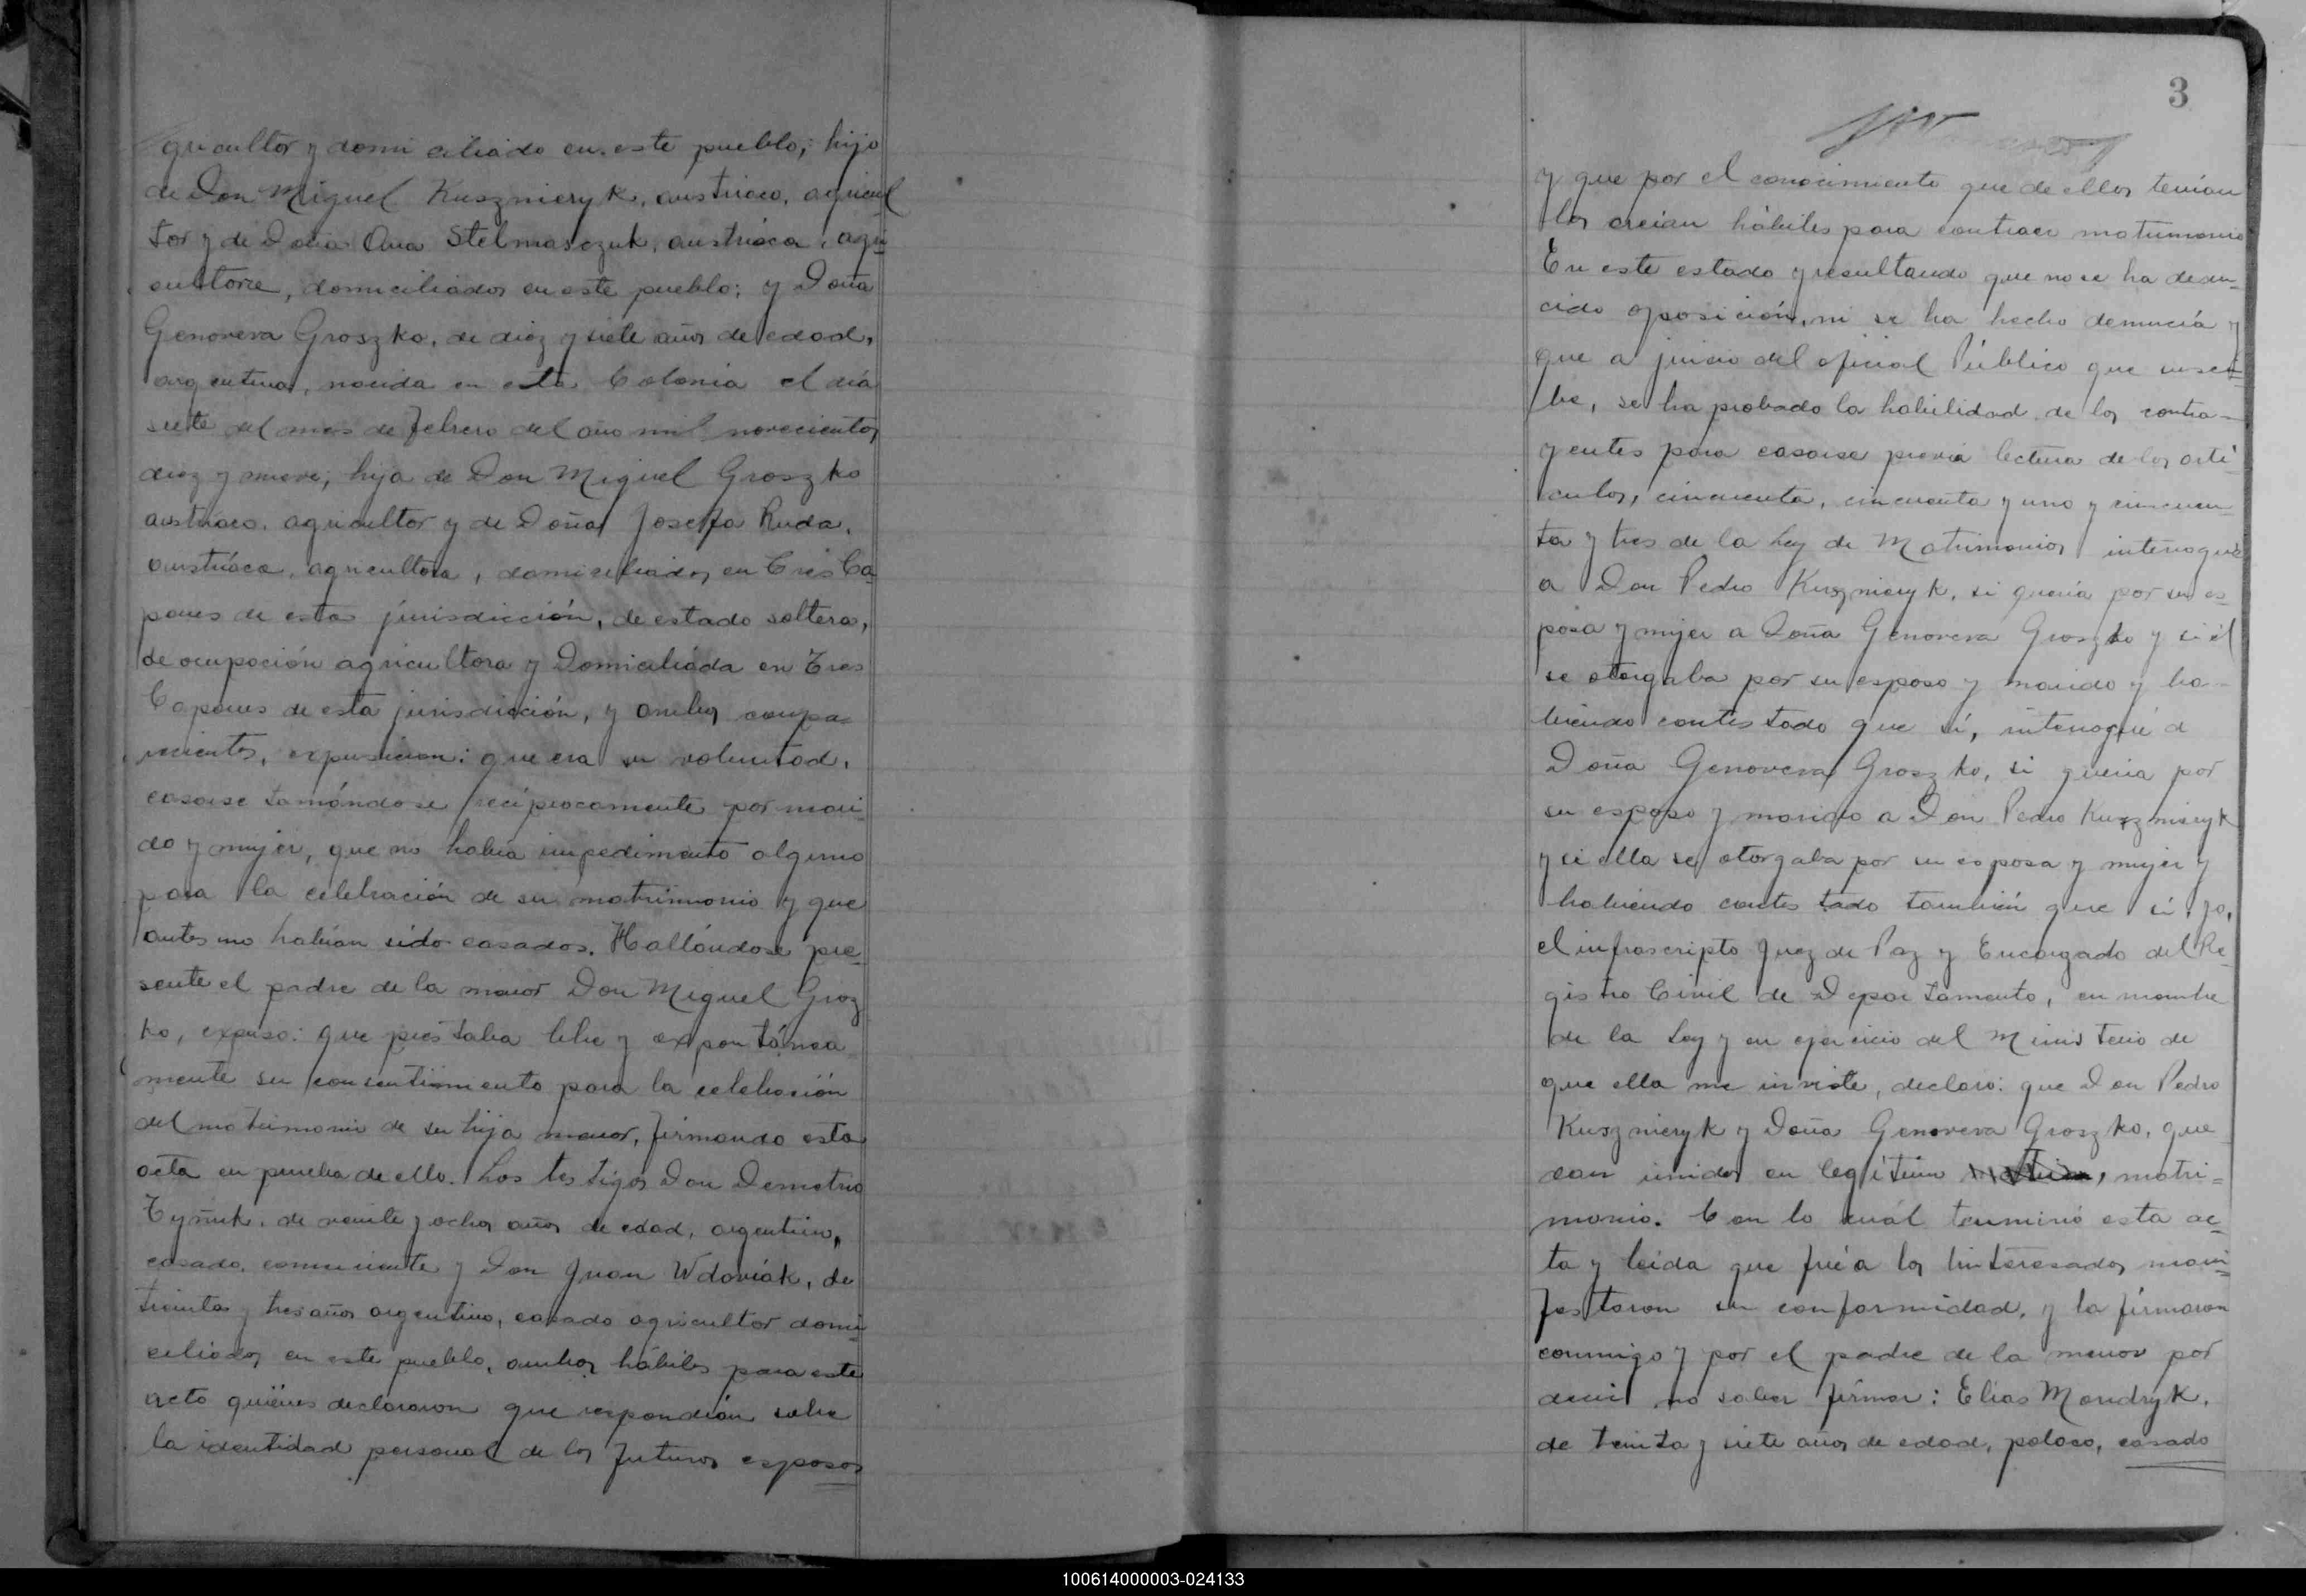 gricultor y domiciliado en este pueblo; hijo
de Don Miguel Kusznieryk, austriaco, agricul
tor y de Doña Ana Stelmasczuk, austriaca, agri
cultora, domiciliados en este pueblo; y Doña
Genoveva Groszko, de diez y siete años de edad,
argentina, nacida en esta Colonia el día
siete del mes de febrero del año mil novecientos
diez y nueve, hija de Don Miguel Groszko
austriaco, agricultor y de Doña Josefa Ruda,
austríaca, agricultora, domiciliados en Tres Ca
pones de esta jurisdicción, de estado soltera,
de ocupación agricultora y Domiciliada en Tres
Capones de esta jurisdicción, y ambos compa=
recientes, expusieron: que era su voluntad,
casarse tomándose recíprocamente por mari
do y mujer, que no había impedimento alguno
para la celebración de su matrimonio y que
antes no habían sido casados. Hallándose pre
sente el padre de la menor Don Miguel Grosz
ko, expuso: que prestaba libre y expontánea
mente su consentimiento para la celebración
del matrimonio de su hija menor, firmando esta
acta en prueba de ello. Los testigos Don Demetrio
de veinte y ocho años de edad, argentino,
casado, comerciante y Don Juan Wdoviák, de
treinta y tres años argentino, casado agricultor domi
ciliados en este pueblo, ambos hábiles para este
acto quiénes declararon que respondían sobre
la identidad personal de los futuros esposos
3
y que por el conocimiento que de ellos tenían
los creían hábiles para contraer matrimonio
En este estado y resultando que no se ha dedu=
cido oposición, ni se ha hecho denuncia y
que a juicio del oficial Público que suscri=
be, se ha probado la habilidad de los contra-
yentes para casarse previa lectura de los artí
culos, cincuenta, cincuenta y uno y cincuen=
ta y tres de la Ley de Matrimonios interrogué
a Don Pedro Kusznieryk, si quería por su es=
posa y mujer a Doña Genoveva Groszko y si él
se otorgaba por su esposo y marido y ha-
biendo contestado que sí, interrogué a
Doña Genoveva Groszko, si quería por
su esposo y marido a Don Pedro Kusznieryk
y si ella se otorgaba por su esposa y mujer y
habiendo contestado también que sí, yo,
el infrascripto Juez de Paz y Encargado del Re=
gistro Civil de Departamento, en nombre
de la Ley y en ejercicio del Ministerio de
que ella me inviste, declaro: que Don Pedro
Kusznieryk y Doña Genoveva Groszko, que
dan unidos en legítimo matri=
monio. Con lo cuál terminó esta ac=
ta y leída que fué a los interesados mani=
festaron su conformidad, y la firmaron
conmigo y por el padre de la menor por
decir no saber firmar: Elías Mondryk,
de treinta y siete años de edad, polaco, casado
100614000003-024133